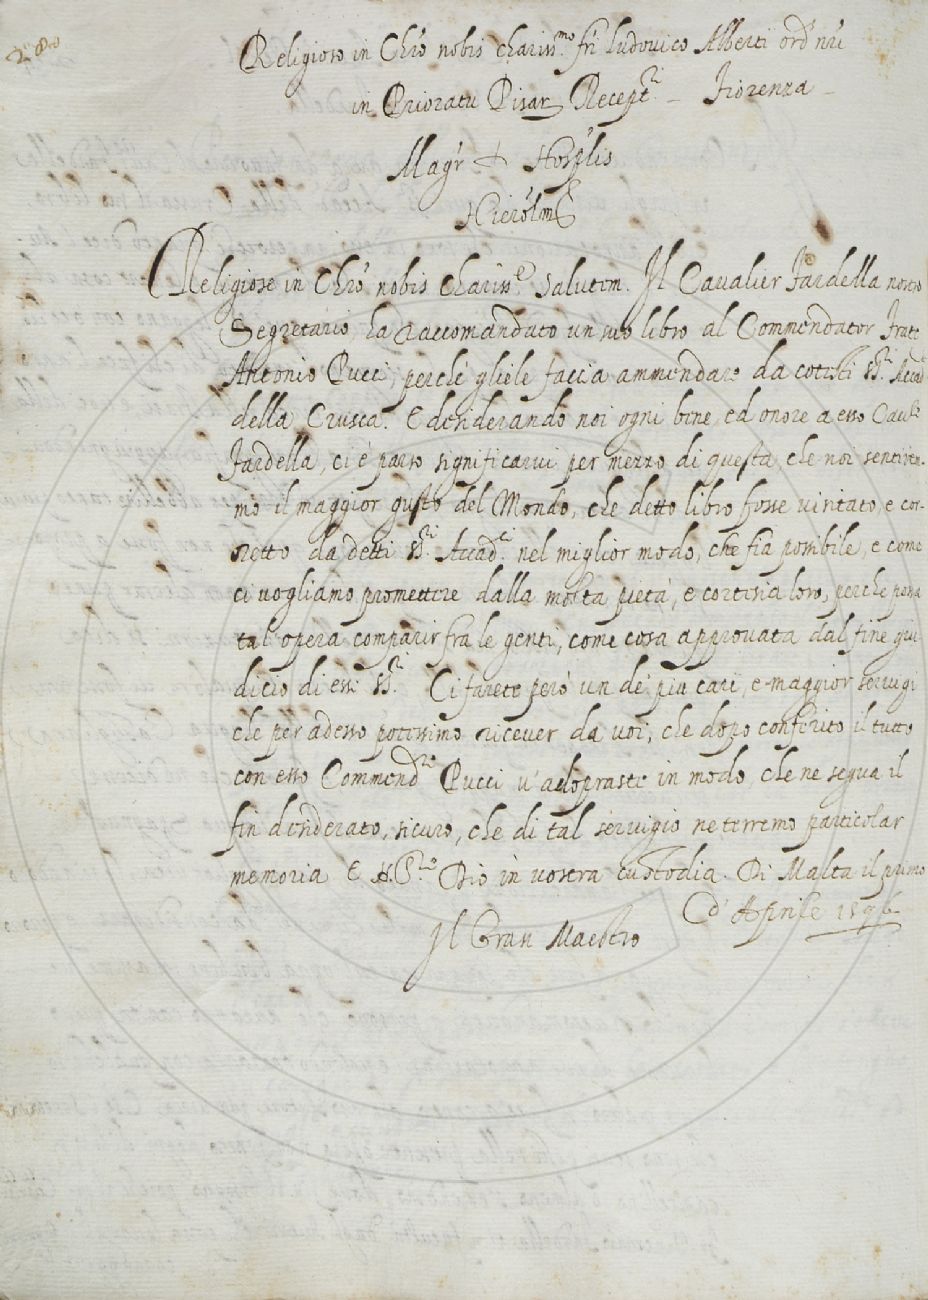 Religioso in Chr̃o nobis chariss.mo frì Ludovico Alberti ord' nr̃i
in Prioratu Pisar. Recept.ri – Fiorenza –
Mag'r Hosp̃lis
Hierol̃m
Religiose in Chr̃o nobis chariss.e salutem. Il Cavalier Fardella nostro
Segretario, ha raccomandato un suo libro al Commendator Fratt
Antonio Pucci, perche gliele faccia ammendare da cotesti SS.ri Accad.
della Crusca. E desiderando noi ogni bene, ed onore a esso Caul.e
Fardella, ci è parso significarvi per mezzo di questa, che noi sentirem-
mo il maggior gusto del Mondo, che detto libro fosse visitato, e cor-
retto da detti SS.ri Accad.ci nel miglior modo, che sia possibile, e come
ci vogliamo promettere dalla molta pietà, e cortesia loro, perche possa
tal' opera comparir fra le genti, come cosa approvata dal fine giu-
dicio di essi SS.ri Ci farete però un de' più cari, e maggior servigi
che per adesso potessimo ricever da voi, che dopo conferito il tutto
con esso Commend.re Pucci v' adopraste in modo, che ne segua il
fin desiderato, sicuro, che di tal servigio ne terremo particolar
memoria E Dio in vostra custodia. Di Malta il primo
d' Aprile 1596
Il Gran Maestro